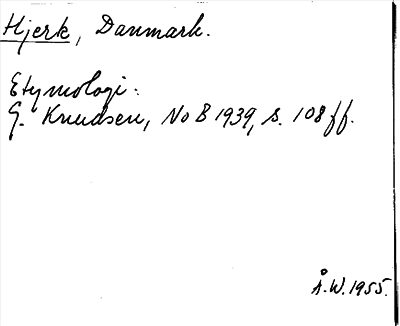 Hjerk, Danmark.
Etymologi:
G. Knudsen, NoB 1939, s. 108 ff.
Å.W. 1955.